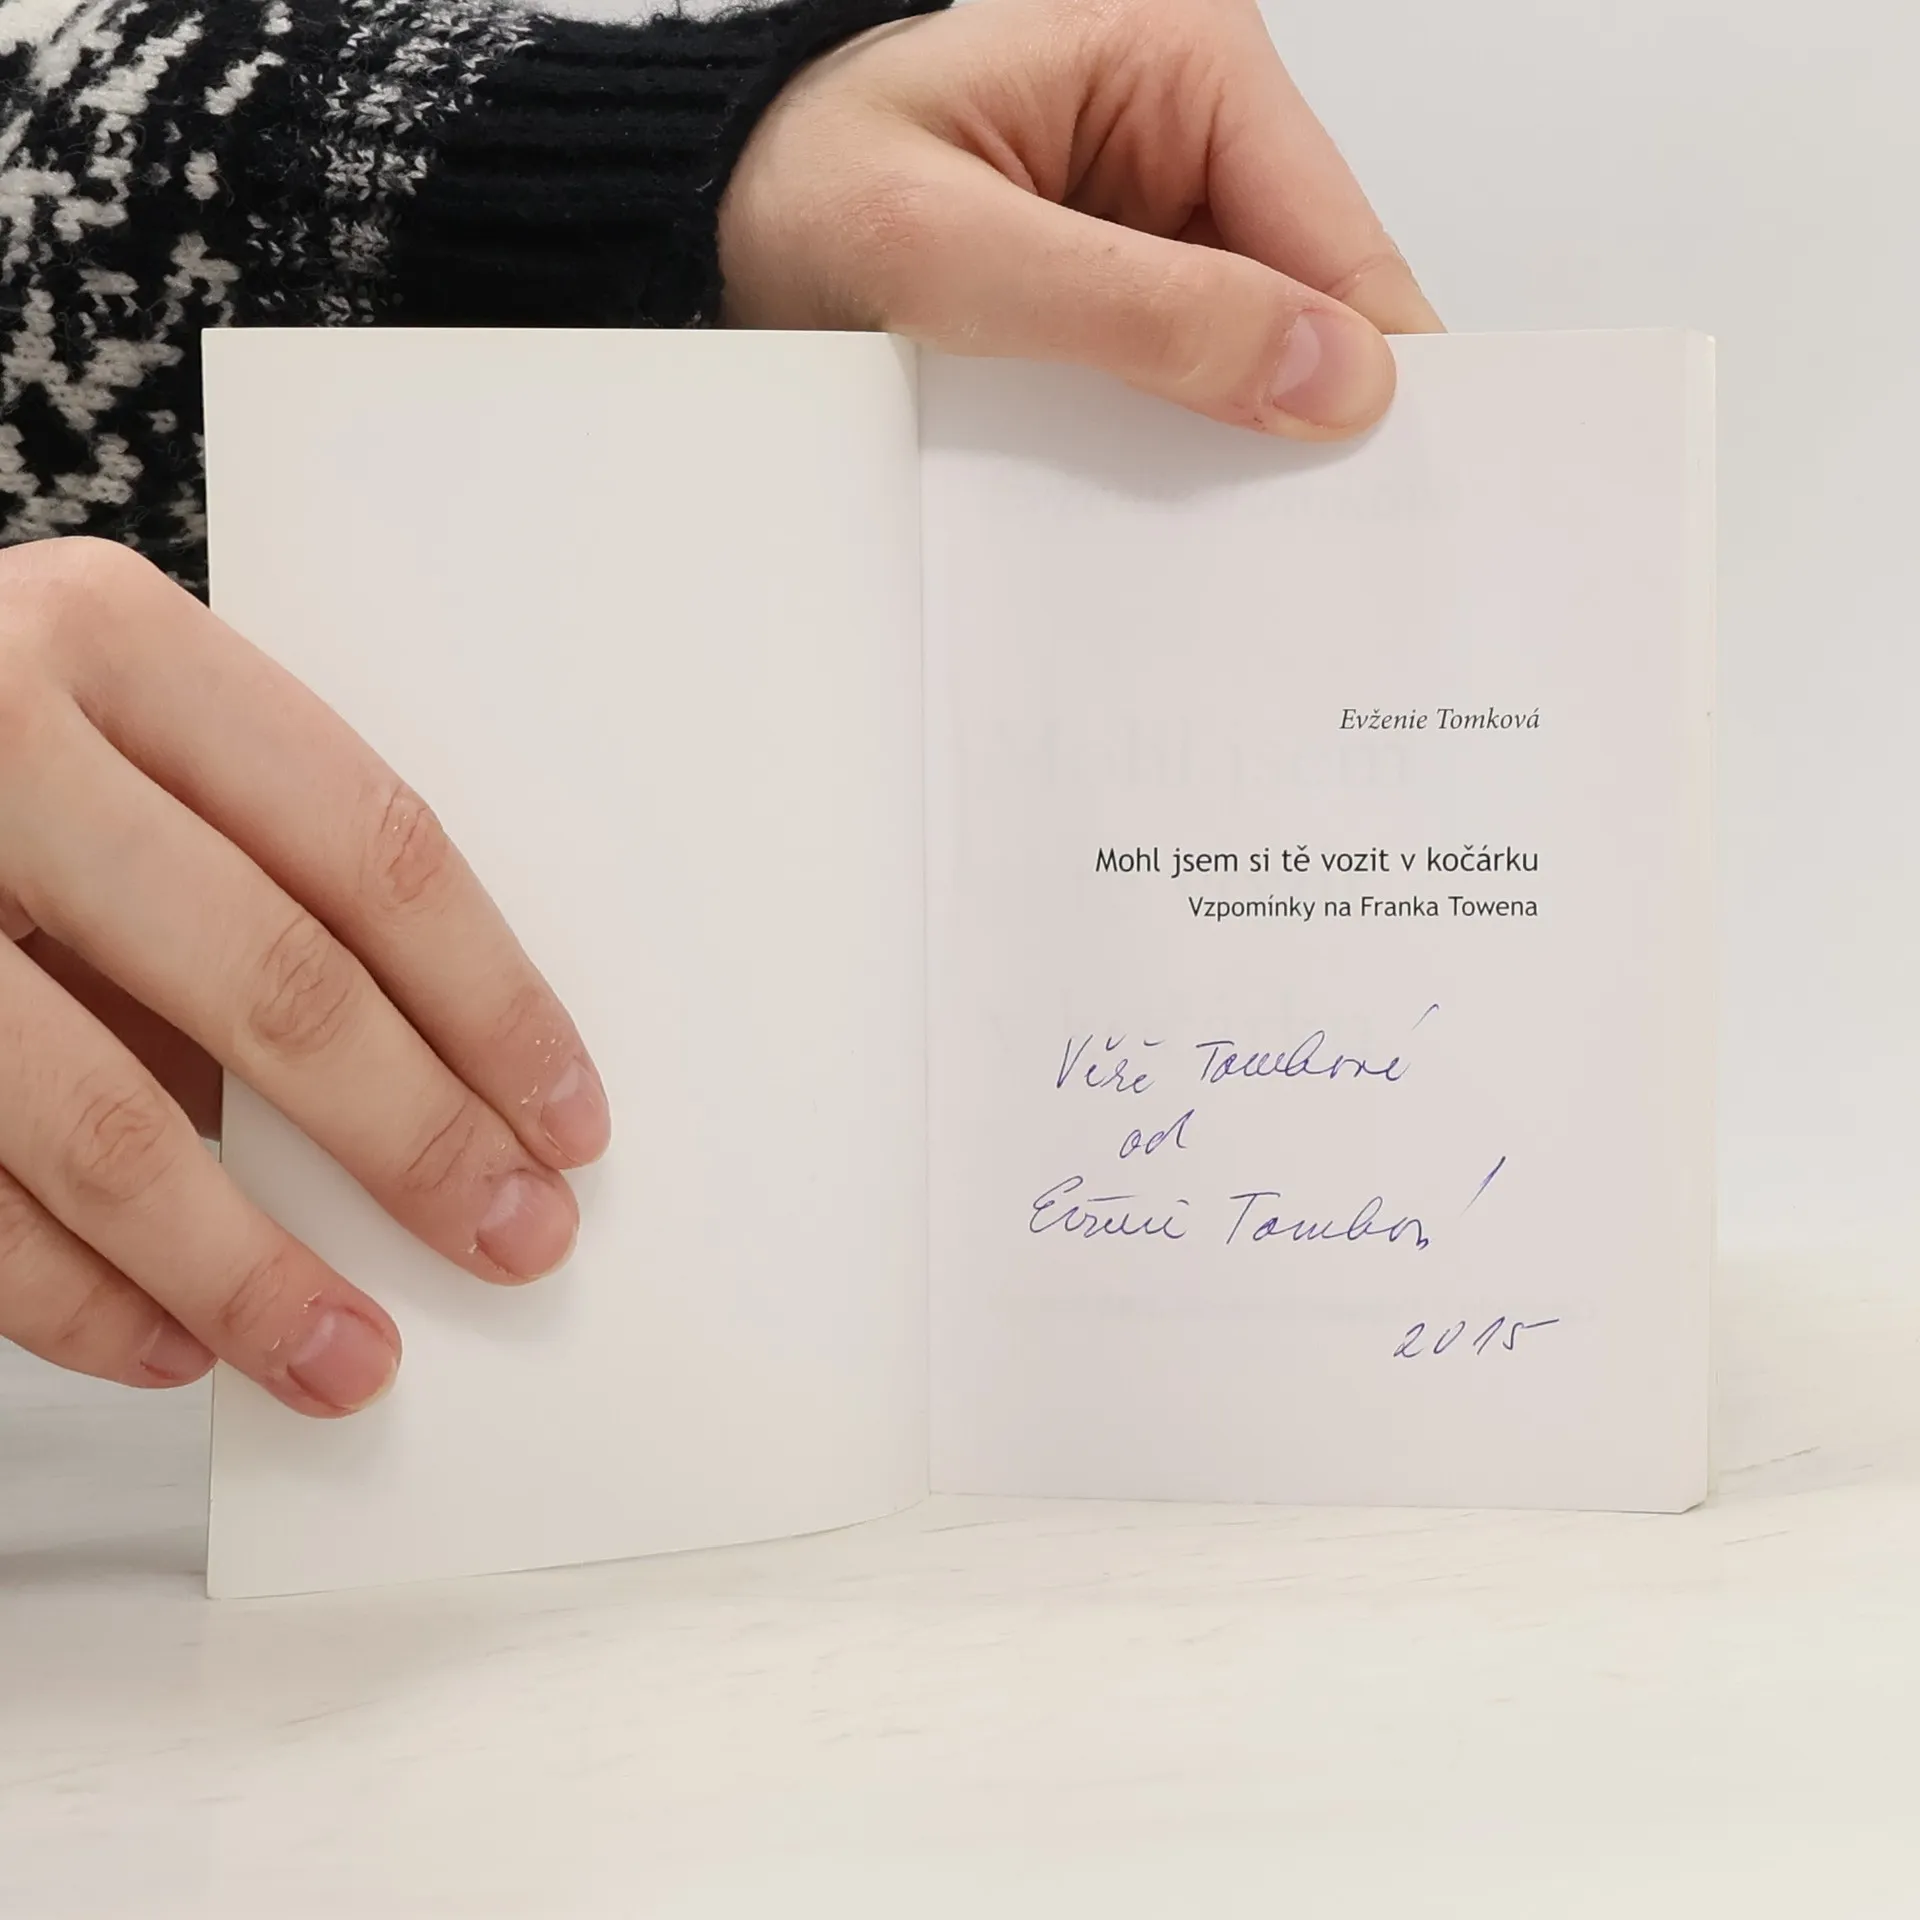 Evženie Tomková
Mohl jsem si tě vozit v kočárku
Vzpomínky na Franka Towena
Věře Tomkové
od
Evženie Tomková
2015